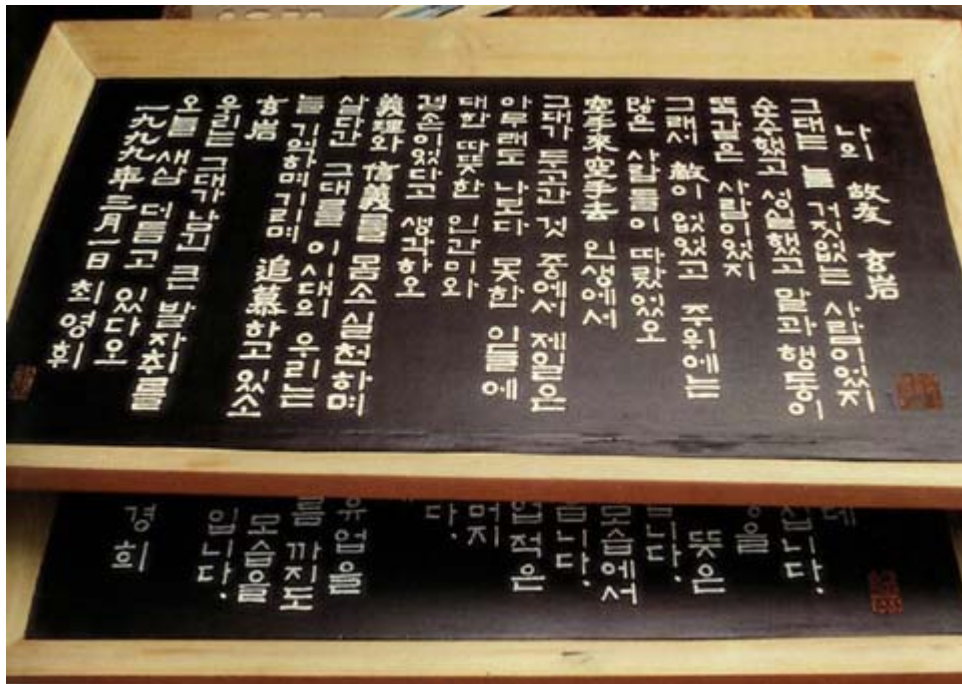 나의 故友 玄岩
그대는 늘 거짓없는 사람이었지
순수했고 성실했고 말과 행동이
똑같은 사람이었지
그래서 敵이 없었고 주위에는
많은 사람들이 따랐었오
空手來空手去 인생에서
그대가 두고간 것 중에서 제일은
아무래도 나보다 못한 이들에
대한 따뜻한 인간미와
겸손이었다고 생각하오
義理와 信義를 몸소실천하며
살다간 그대를 이시대의 우리는
늘 기억하며 그리며 追慕하고 있소
玄岩
우리는 그대가 남긴 큰 발자취를
오늘 새삼 더듬고 있다오
一九九九年 三月一日 최영휘
십니다.
뜻은
니다.
모습에서
습니다.
업적은
다.
유업을
까지도
모습을
입니다.
경희